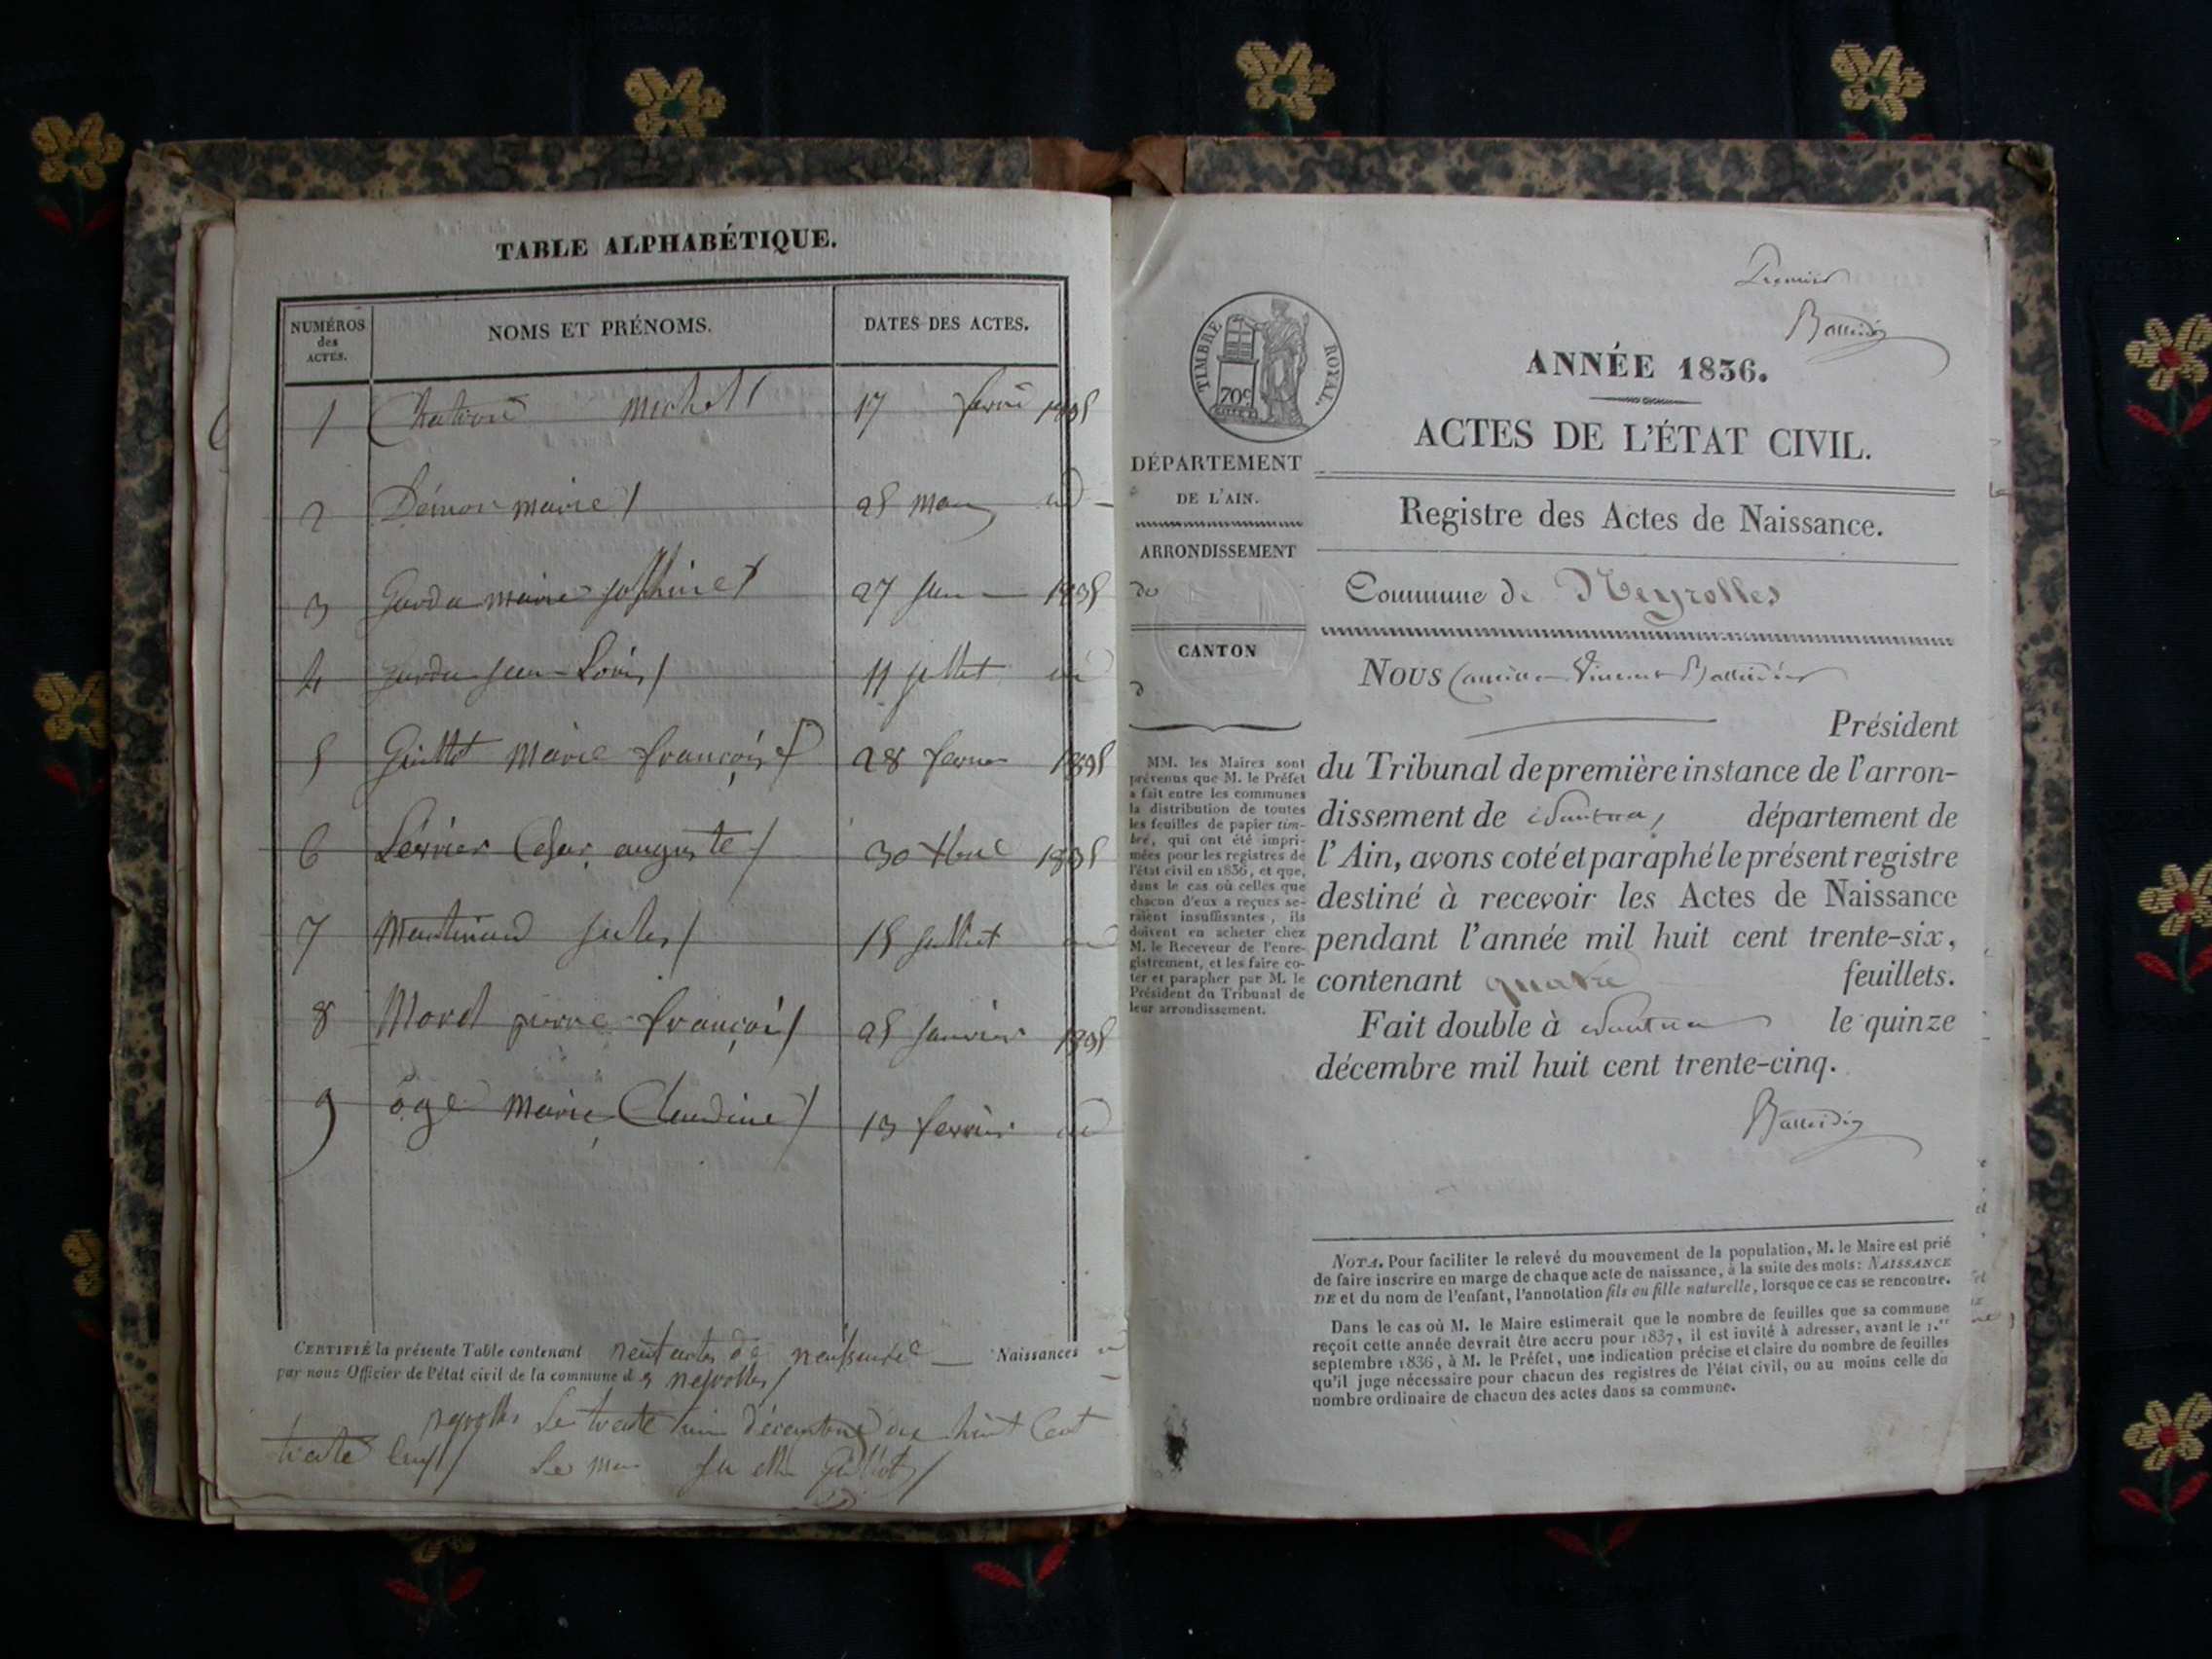 TABLE ALPHABÉTIQUE.
NUMÉROS
des
ACTES.
NOMS ET PRÉNOMS.
DATES DES ACTES.
1 michel 17 1835
2 marie 25
3 marie 27 1835
4 Louis 11 jullet
5 Guillot Marie françoise 28 1835
6 Cesar auguste 30 1835
7 jules 15 jullet
8 Morel pierre françois 25 janvier 1835
9 ogé Marie Claudine 13
CERTIFIÉ la présente Table contenant neuf actes de Naissances
par nous Officier de l'état civil de la commune de neyrolles
neyrolles Le trente décembre huit Cent
trente
Le
Premier
TIMBRE ROYAL.
70c
ANNÉE 1836.
ACTES DE L'ÉTAT CIVIL.
Registre des Actes de Naissance.
Commune de Neyrolles
DÉPARTEMENT
DE L'AIN.
ARRONDISSEMENT
de
CANTON
d
MM. les Maires sont
prévenus que M. le Préfet
a fait entre les communes
la distribution de toutes
les feuilles de papier tim-
bré, qui ont été impri-
mées pour les registres de
l'état civil en 1836, et que,
dans le cas où celles que
chacun d'eux a reçues se-
raient insuffisantes, ils
doivent en acheter chez
M. le Receveur de l'enre-
gistrement, et les faire co-
ter et parapher par M. le
Président du Tribunal de
leur arrondissement.
NOUS Vincent
Président
du Tribunal de première instance de l'arron-
dissement de Nantua, département de
l'Ain, avons coté et paraphé le présent registre
destiné à recevoir les Actes de Naissance
pendant l'année mil huit cent trente-six,
contenant quatre feuillets.
Fait double à Nantua le quinze
décembre mil huit cent trente-cinq.
NOTA. Pour faciliter le relevé du mouvement de la population, M. le Maire est prié
de faire inscrire en marge de chaque acte de naissance, à la suite des mots: NAISSANCE
DE et du nom de l'enfant, l'annotation fils ou fille naturelle, lorsque ce cas se rencontre.
Dans le cas où M. le Maire estimerait que le nombre de feuilles que sa commune
reçoit cette année devrait être accru pour 1837, il est invité à adresser, avant le 1.er
septembre 1836, à M. le Préfet, une indication précise et claire du nombre de feuilles
qu'il juge nécessaire pour chacun des registres de l'état civil, ou au moins celle du
nombre ordinaire de chacun des actes dans sa commune.